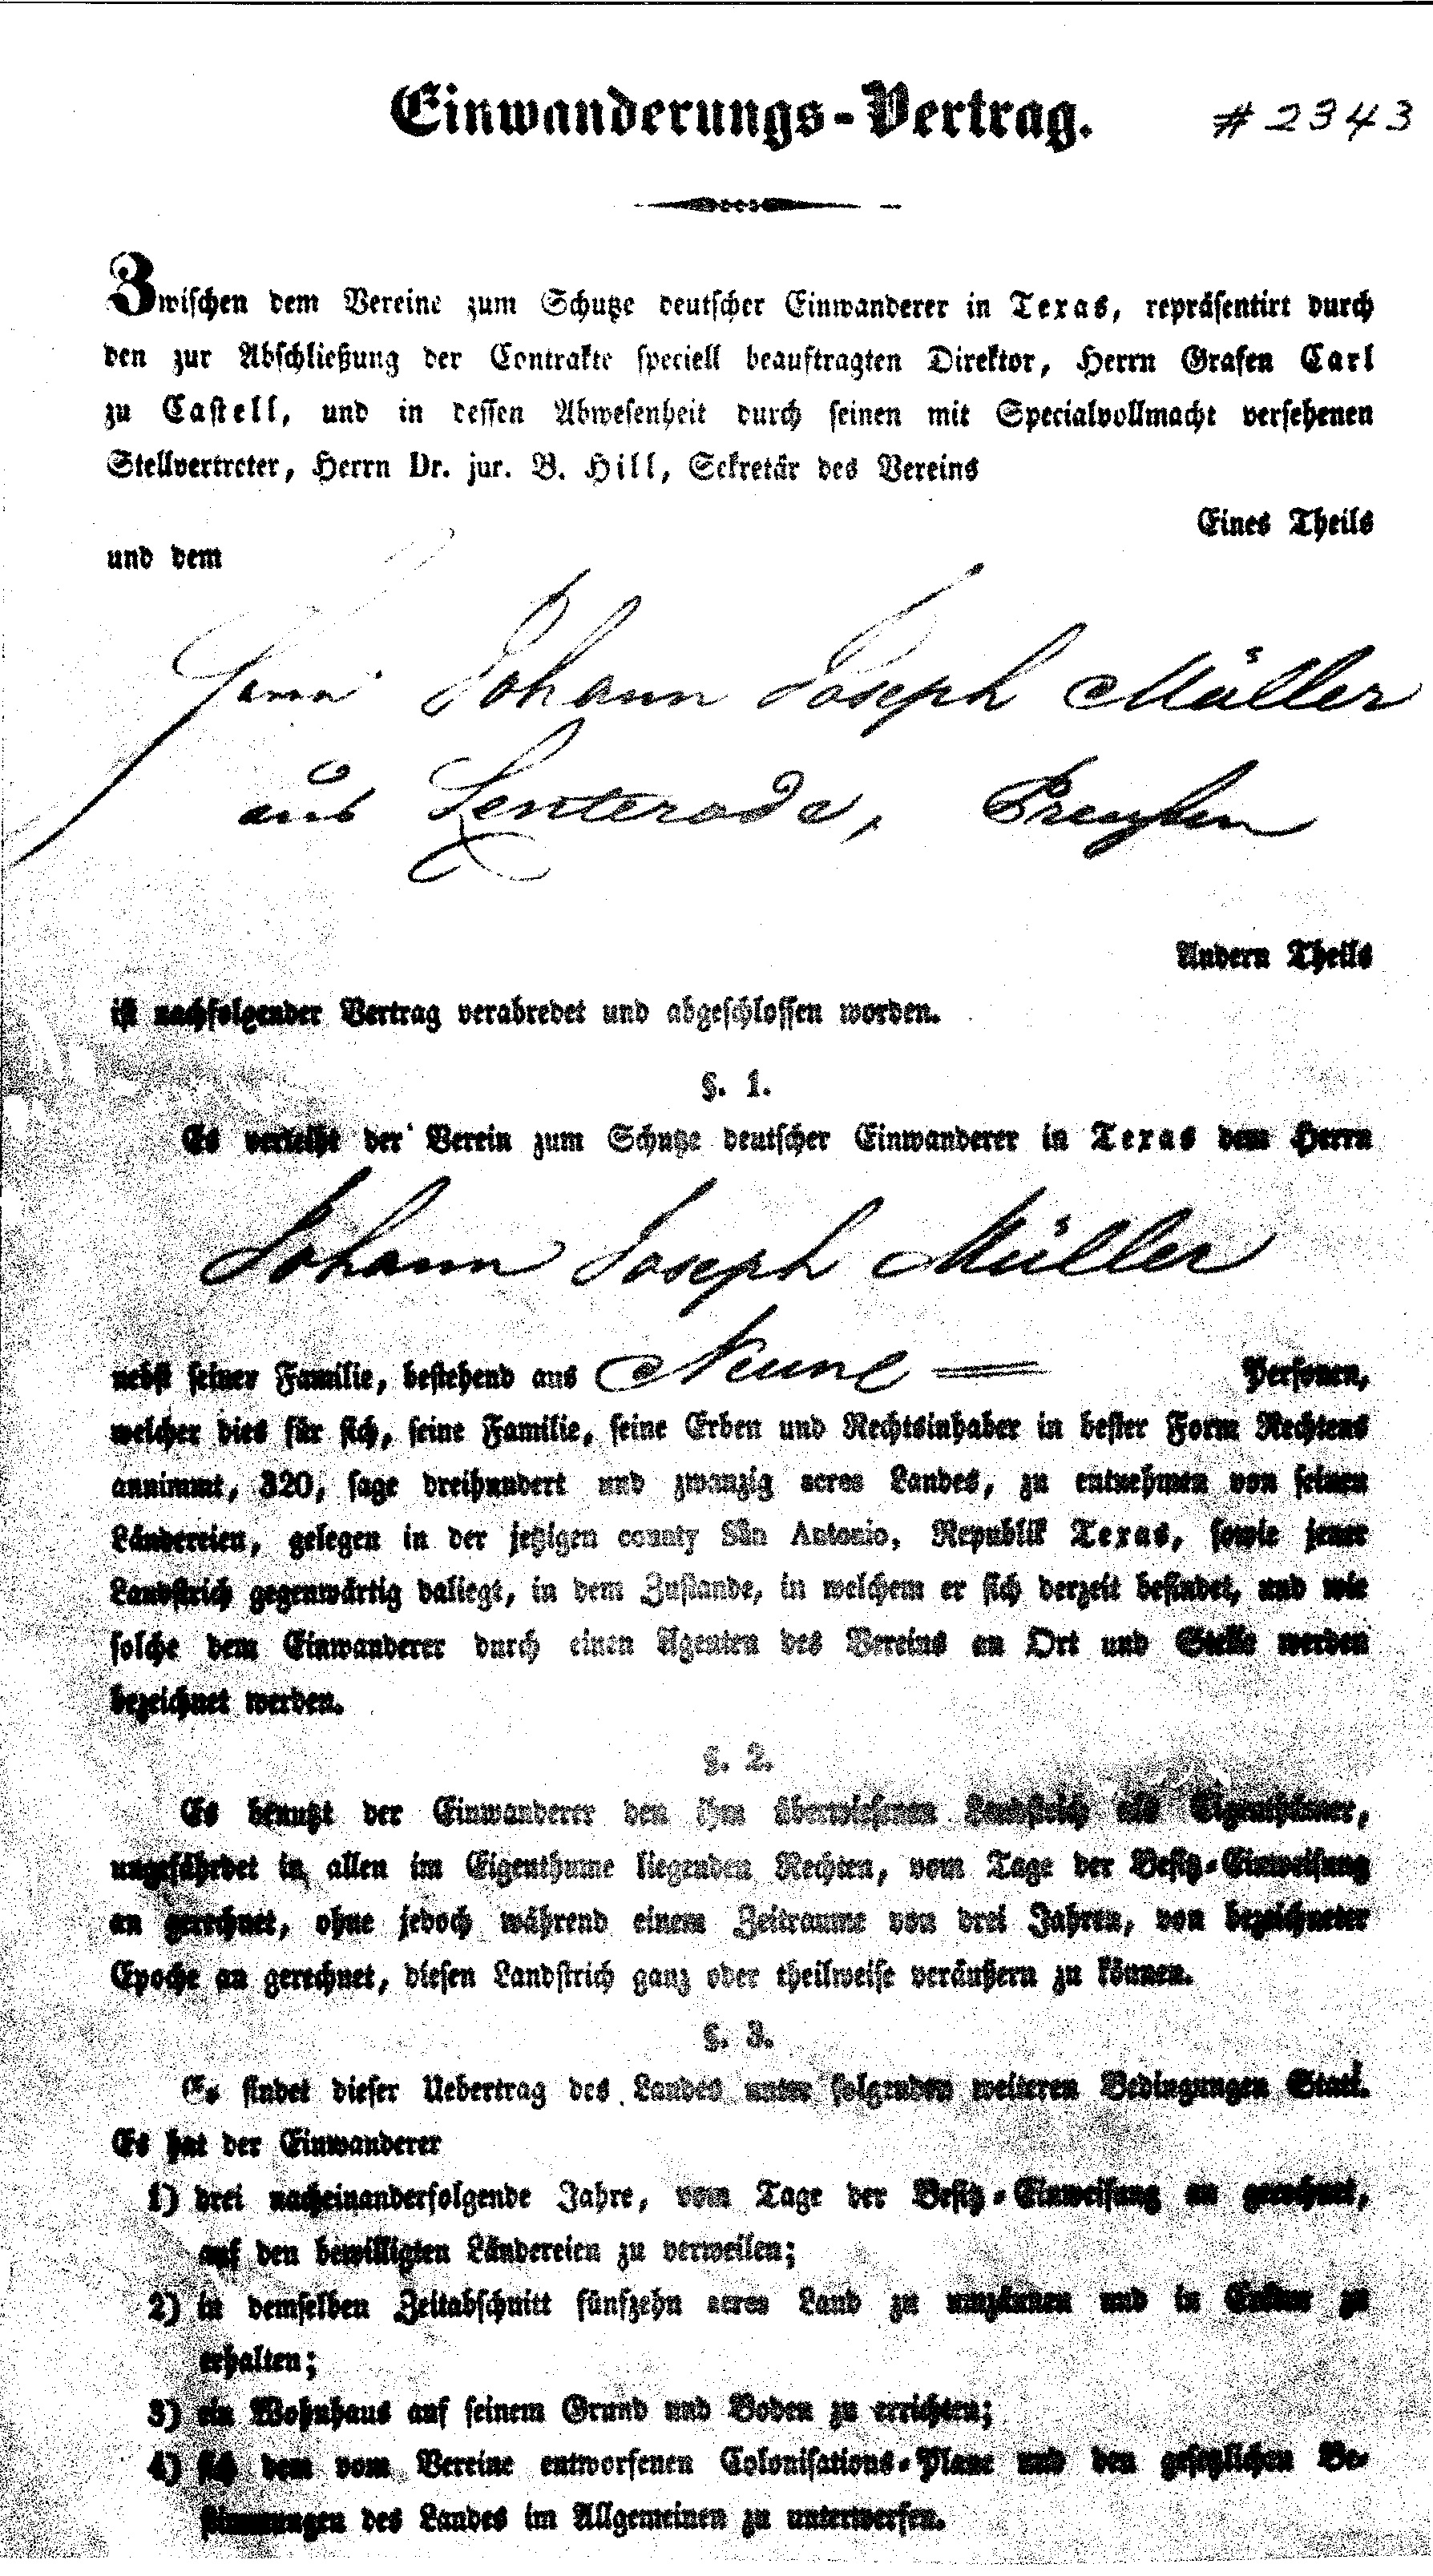 Einwanderungs-Vertrag. #2343
Zwischen dem Vereine zum Schutze deutscher Einwanderer in Texas, repräsentirt durch
den zur Abschließung der Contrakte speciell beauftragten Direktor, Herrn Grafen Carl
zu Castell, und in dessen Abwesenheit durch seinen mit Specialvollmacht versehenen
Stellvertreter, Herrn Dr. jur. B. Hill, Sekretär des Vereins
Eines Theils
und dem
Herrn Johann Joseph Müller
aus Lenterode, Preußen
Andern Theils
ist nachfolgender Vertrag verabredet und abgeschlossen worden.
§. 1.
Es verleiht der Verein zum Schutze deutscher Einwanderer in Texas dem Herrn
Johann Joseph Müller
nebst seiner Familie, bestehend aus Neune Personen,
welcher dies für sich, seine Familie, seine Erben und Rechtsinhaber in bester Form Rechtens
annimmt, 320, sage dreihundert und zwanzig acres Landes, zu entnehmen von seinen
Ländereien, gelegen in der jetzigen county San Antonio, Republik Texas, sowie jener
Landstrich gegenwärtig daliegt, in dem Zustande, in welchem er sich derzeit befindet, und wie
solche dem Einwanderer durch einen Agenten des Vereins an Ort und Stelle werden
bezeichnet werden.
§. 2.
Es benutzt der Einwanderer den ihm überwiesenen Landstrich als Eigenthümer,
ungefährdet in allen im Eigenthume liegenden Rechten, vom Tage der Besitz-Einweisung
an gerechnet, ohne jedoch während einem Zeitraume von drei Jahren, von bezeichneter
Epoche an gerechnet, diesen Landstrich ganz oder theilweise veräußern zu können.
§. 3.
Es findet dieser Uebertrag des Landes unter folgenden weiteren Bedingungen Statt.
Es hat der Einwanderer
1) drei nacheinanderfolgende Jahre, vom Tage der Besitz-Einweisung an gerechnet,
auf den bewilligten Ländereien zu verweilen;
2) in demselben Zeitabschnitt fünfzehn acres Land zu umzäunen und in Cultur zu
erhalten;
3) ein Wohnhaus auf seinem Grund und Boden zu errichten;
4) sich dem vom Vereine entworfenen Colonisations-Plane und den gesetzlichen Be-
stimmungen des Landes im Allgemeinen zu unterwerfen.